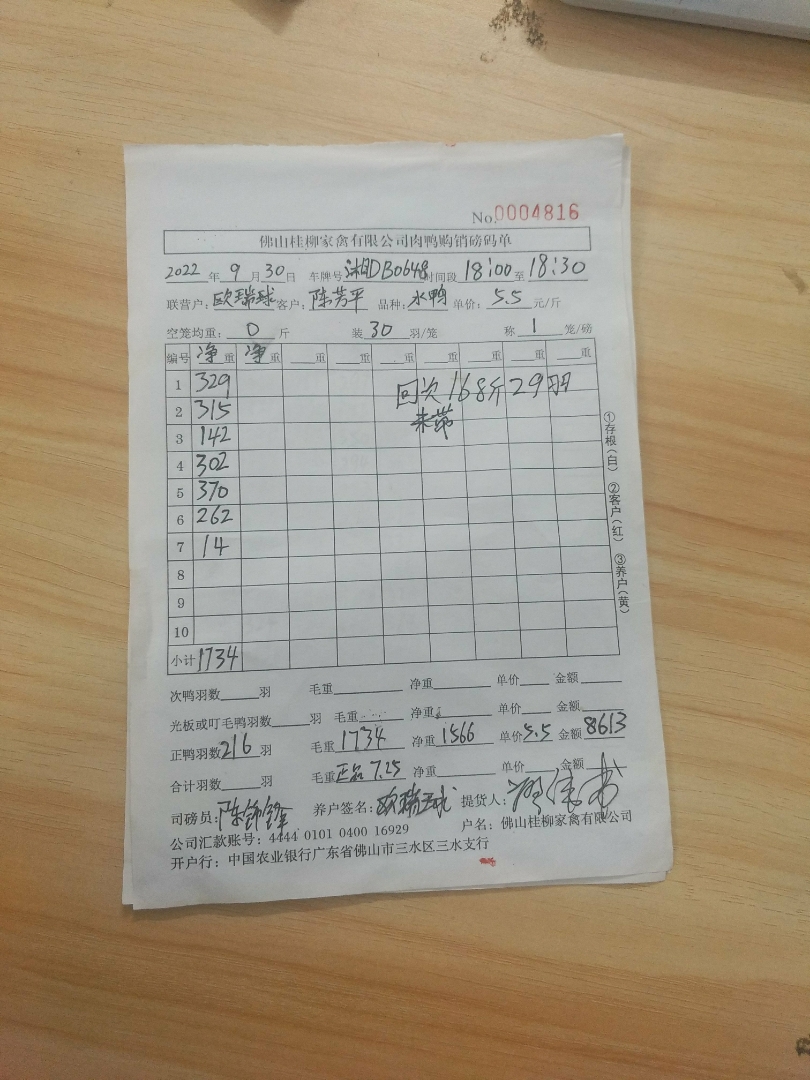 No.0004816
佛山桂柳家禽有限公司肉鸭购销磅码单
2022年9月30日 车牌号湘DB0648时间段18:00至18:30
联营户:欧瑞球客户:陈芳平 品种:水鸭 单价:5.5元/斤
空笼均重:0斤 装30羽/笼 称1笼/磅
编号 净重 净重 重 重 重 重 重 重 重
1 329 回次168斤29羽
2 315
3 142
4 302
5 370
6 262
7 14
8
9
10
小计 1734
①存根(白) ②客户(红) ③养户(黄)
次鸭羽数 羽 毛重 净重 单价 金额
光板或叮毛鸭羽数 羽 毛重 净重 单价 金额
正鸭羽数216羽 毛重1734 净重1566 单价5.5 金额8613
合计羽数 羽 毛重正品7.25 净重 单价 金额
司磅员: 养户签名:欧瑞球 提货人:
公司汇款账号:4444 0101 0400 16929 户名:佛山桂柳家禽有限公司
开户行:中国农业银行广东省佛山市三水区三水支行